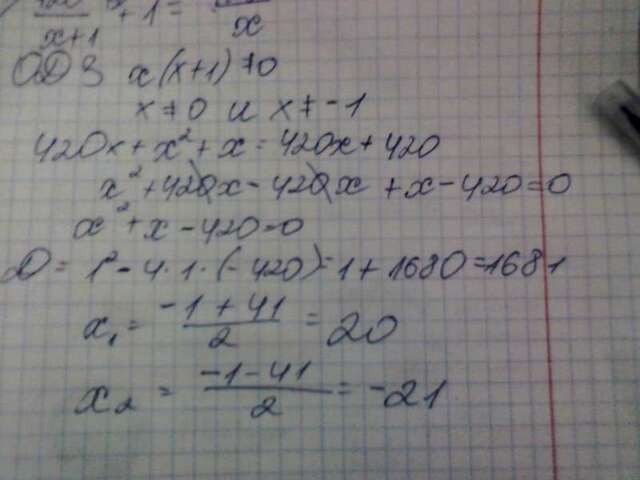 420/(x+1) + 1 = /x
ОДЗ x(x+1) ≠ 0
x ≠ 0 и x ≠ -1
420x + x² + x = 420x + 420
x² + 420x - 420x + x - 420 = 0
x² + x - 420 = 0
D = 1² - 4·1·(-420) = 1 + 1680 = 1681
x₁ = (-1 + 41)/2 = 20
x₂ = (-1 - 41)/2 = -21